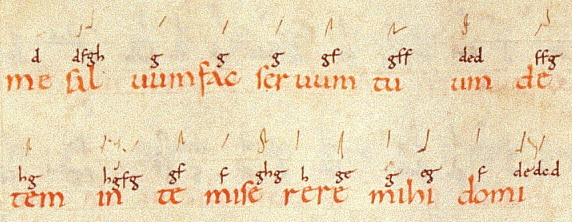 d dfgh g g g gf gff ded ffg
me sal uumfac ser uum tu um de
hg hgfg gf f ghg h ge g eg f dedcd
tem in te mise rere mihi domi